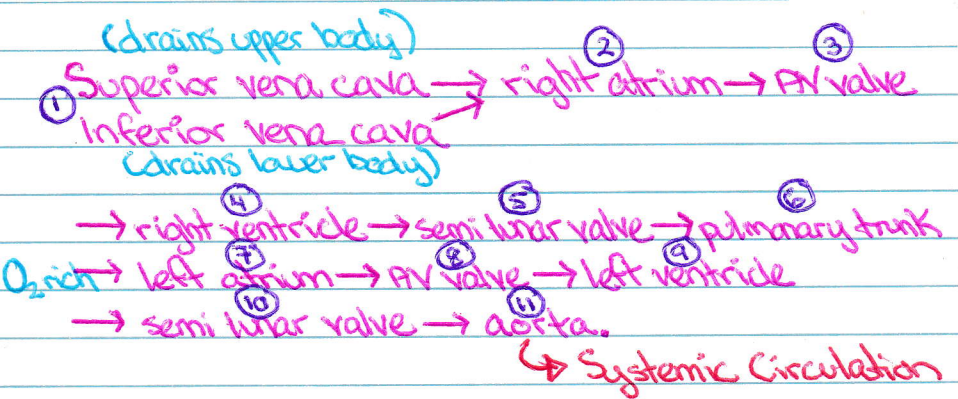 (drains upper body)
② ③
Superior vena cava → right atrium → AV valve
①
Inferior vena cava
(drains lower body)
④ ⑤ ⑥
→ right ventricle → semi lunar valve → pulmonary trunk
⑦ ⑧ ⑨
O₂ rich → left atrium → AV valve → left ventricle
⑩ ⑪
→ semi lunar valve → aorta.
↳ Systemic Circulation